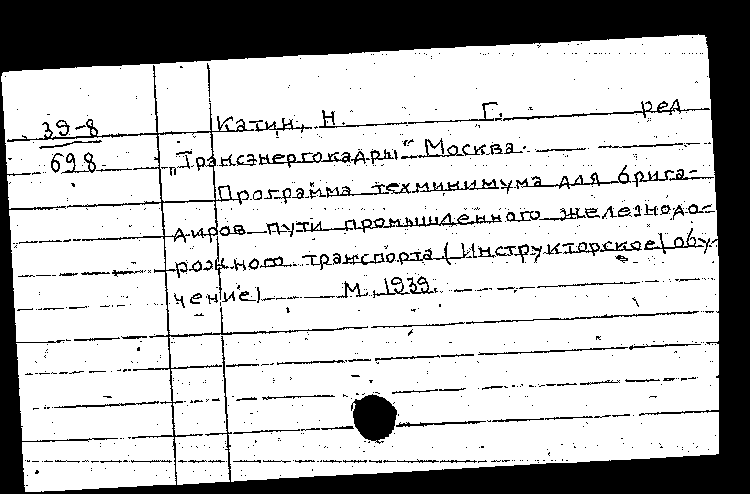 39-8 Катин, Н. Г. ред
698 „Трансэнергокадры" Москва.
Программа техминимума для брига-
диров пути промышленного железнодо-
рожного транспорта (Инструкторское обу-
чение) М., 1939.